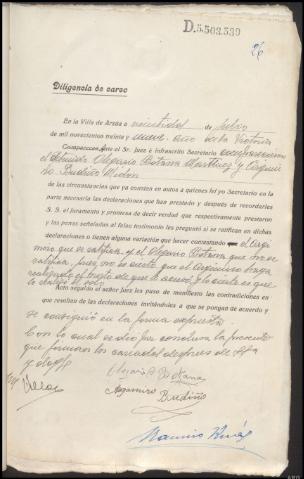 D.5.503.539
26
Diligencia de careo
En la Villa de Arzúa a veintidos de Julio
de mil novecientos treinta y nueve. Año de la Victoria
Comparecen ante el Sr. Juez e infrascrito Secretario
el Olegario Botana Martínez y
Budiño
de las circunstancias que ya constan en autos a quienes fol yo Secretario en la
parte necesaria las declaraciones que han prestado y después de recordarles
S. S. el juramento y promesa de decir verdad que respectivamente prestaron
y las penas señaladas al falso testimonio les preguntó si se ratifican en dichas
declaraciones o tienen alguna variación que hacer contestando el
que se ratifica, y el Olegario Botana que no se
ratifica, pues no es cierto que el haya
realizado el de que le acusó, y lo cierto es que
lo él solo
Acto seguido el señor Juez les puso de manifiesto las contradicciones en
que resultan de las declaraciones invitándoles a que se pongan de acuerdo y
se consiguió en la forma expuesta.
Con lo cual se dio por conclusa la presente
que firman los careados después de S.Sª
y doy fe
Olegario Botana
Argimiro Budiño
Ramiro